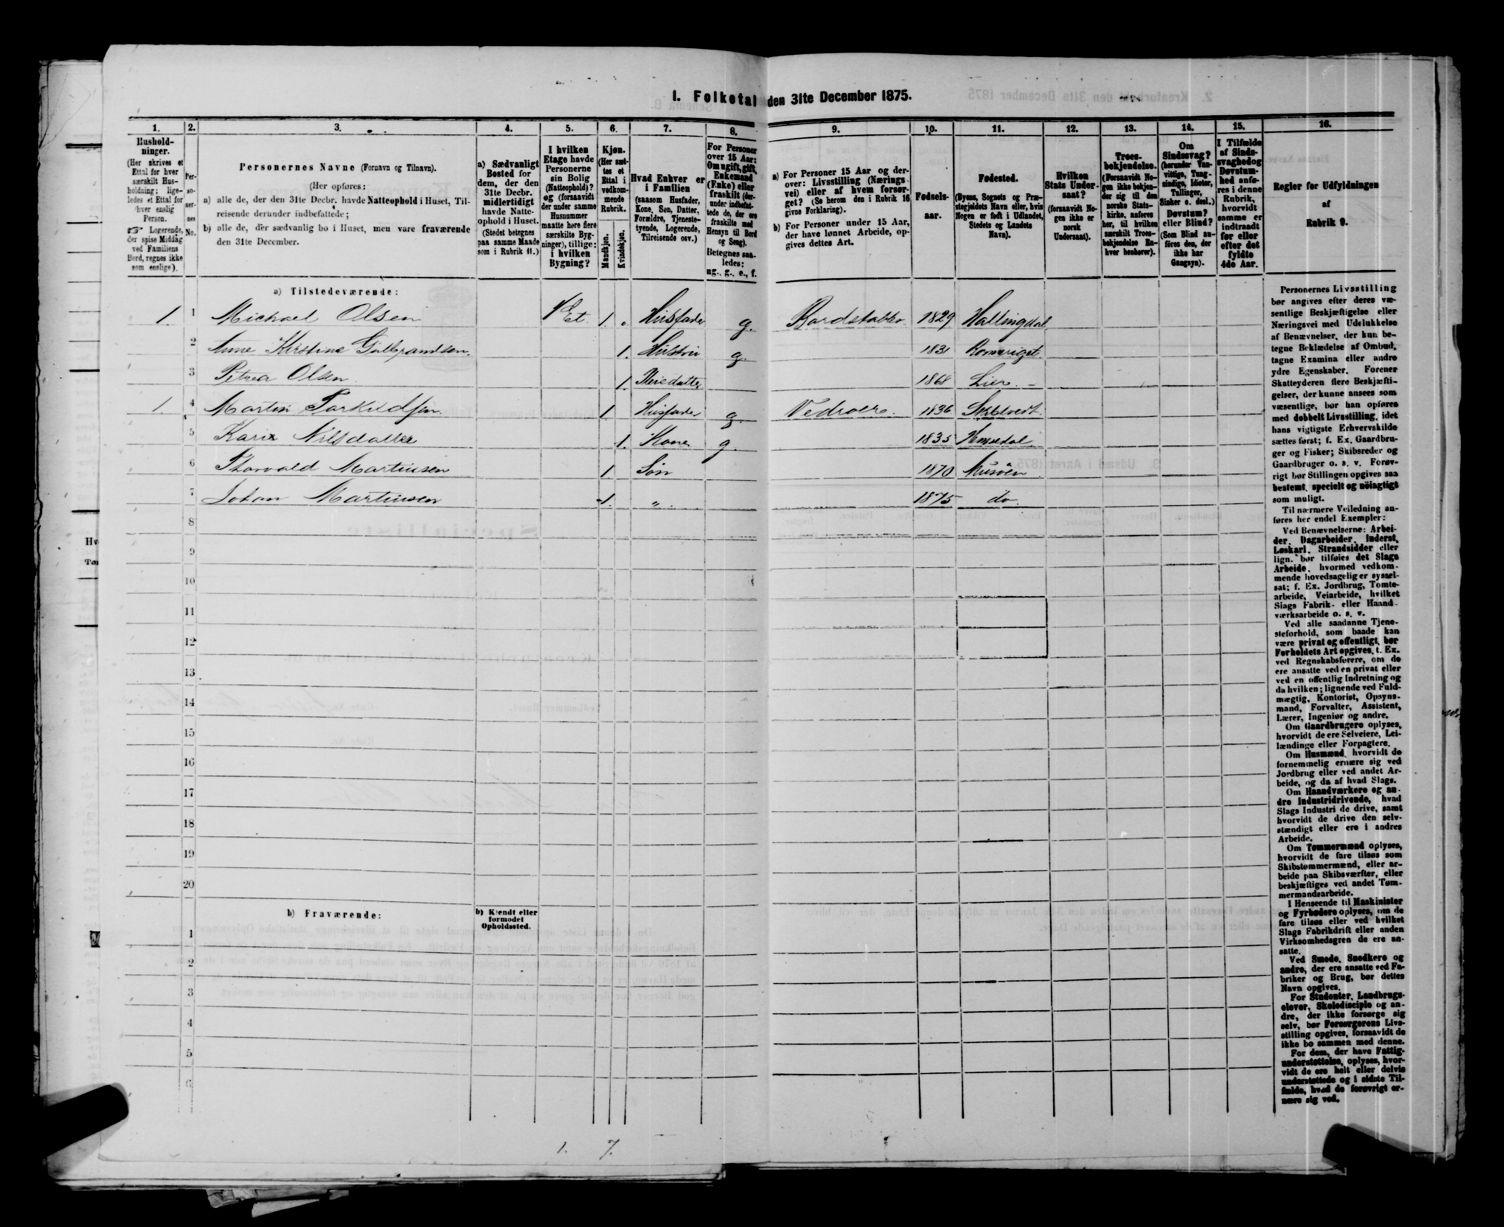 I. Folketal den 31te December 1875.
1.
2.
3.
4.
5.
6.
7.
8.
9.
10.
11.
12.
13.
14.
15.
16.
Hushold-
ninger.
(Her skrives et
Ettal for hver
særskilt Hus-
holdning; lige-
ledes et Ettal for
hver enslig
Person.
☞ Logerende,
der spise Middag
ved Familiens
Bord, regnes ikke
som enslige).
Per-
so-
ner-
nes
No.
Personernes Navne (Fornavn og Tilnavn).
(Her opføres:
a) alle de, der den 31te Decbr. havde Natteophold i Huset, Til-
reisende derunder indbefattede;
b) alle de, der sædvanlig bo i Huset, men vare fraværende
den 31te December.
a) Sædvanligt
Bosted for
dem, der den
31te Decbr.
midlertidigt
havde Natte-
ophold i Huset.
(Stedet betegnes
paa samme Maade
som i Rubrik 11.)
I hvilken
Etage havde
Personerne
sin Bolig
(Natteophold)?
og (forsaavidt
der under samme
Husnummer
maatte høre flere
særskilte Byg-
ninger), tillige:
i hvilken
Bygning?
Kjøn.
(Her sæt-
tes et
Ettal i
vedkom-
mende
Rubrik.
Mandkjøn.
Kvindekjøn.
Hvad Enhver er
i Familien
(saasom Husfader,
Kone, Søn, Datter,
Forældre, Tjeneste-
tyende, Logerende,
Tilreisende osv.)
For Personer
over 15 Aar:
Om ugift, gift,
Enkemand
(Enke) eller
fraskilt (der-
under indbefat-
tede de, der ere
fraskilte med
Hensyn til Bord
og Seng).
Betegnes saa-
ledes:
ug., g., e., f.
a) For Personer 15 Aar og der-
over: Livsstilling (Nærings-
vei) eller af hvem forsør-
get? (Se herom den i Rubrik 16
givne Forklaring).
b) For Personer under 15 Aar,
der have lønnet Arbeide, op-
gives dettes Art.
Fødsels-
aar.
Fødested.
(Byens, Sognets og Præ-
stegjeldets Navn eller, hvis
Nogen er født i Udlandet,
Stedets og Landets
Navn).
Hvilken
Stats Under-
saat?
(forsaavidt No-
gen ikke er
norsk
Undersaat).
Troes-
bekjendelse.
(Forsaavidt No-
gen ikke bekjen-
der sig til den
norske Stats-
kirke, anføres
her, til hvilken
særskilt Troes-
bekjendelse En-
hver henhører).
Om
Sindssvag?
(herunder Van-
vittige, Tung-
sindige, Idioter,
Tullinger,
Sinker o. desl.)
Døvstum?
eller Blind?
(Som Blind an-
føres den, der
ikke har
Gangsyn).
I Tilfælde
af Sinds-
svaghed og
Døvstum-
hed anfø-
res i denne
Rubrik,
hvorvidt
samme er
indtraadt
før eller
efter det
fyldte
4de Aar.
Regler for Udfyldningen
af
Rubrik 9.
a) Tilstedeværende:
1. 1 Michael Olsen 1 Et 1. Husfader g. 1829 Hallingdal
2 Anne Kirstine Gulbrandsen 1. Hustru g. 1831 Romeriget
3 Petrea Olsen 1. Pleiedatter 1868 Lier
1. 4 Martin Torkildsen 1 Husfader g. 1836
5 Karin Nilsdatter 1. Kone g. 1835 Hemsedal
6 Thorvald Martinsen 1 Søn 1870
7 Johan Martinsen 1. „ 1875 do
8
9
10
11
12
13
14
15
16
17
18
19
20
b) Fraværende:
b) Kjendt eller
formodet
Opholdssted.
1
2
3
4
5
6
1. 7.
Personernes Livsstilling
bør angives efter deres væ-
sentlige Beskjæftigelse eller
Næringsvei med Udelukkelse
af Benævnelser, der kun be-
tegne Beklædelse af Ombud,
tagne Examina eller andre
ydre Egenskaber. Forener
Skatteyderen flere Beskjæfti-
gelser, der kunne ansees som
væsentlige, bør han opføres
med dobbelt Livsstilling, idet
hans vigtigste Erhvervskilde
sættes først; f. Ex. Gaardbru-
ger og Fisker; Skibsreder og
Gaardbruger o. s. v. Forøv-
rigt bør Stillingen opgives saa
bestemt, specielt og nøiagtigt
som muligt.
Til nærmere Veiledning an-
føres her endel Exempler:
Ved Benævnelserne: Arbei-
der, Dagarbeider, Inderst,
Løskarl, Strandsidder eller
lign. bør tilføies det Slags
Arbeide, hvormed vedkom-
mende hovedsagelig er syssel-
sat; f. Ex. Jordbrug, Tomte-
arbeide, Veiarbeide, hvilket
Slags Fabrik- eller Haand-
værksarbeide o. s. v.
Ved alle saadanne Tjene-
steforhold, som baade kan
være privat og offentligt, bør
Forholdets Art opgives, t. Ex.
ved Regnskabsførere, om de
ere ansatte ved en privat eller
ved en offentlig Indretning og
da hvilken; lignende ved Fuld-
mægtig, Kontorist, Opsyns-
mand, Forvalter, Assistent,
Lærer, Ingeniør og andre.
Om Gaardbrugere oplyses,
hvorvidt de ere Selveiere, Lei-
lændinge eller Forpagtere.
Om Husmænd, hvorvidt de
fornemmelig ernære sig ved
Jordbrug eller ved andet Ar-
beide, og da af hvad Slags.
Om Haandværkere og an-
dre Industridrivende, hvad
Slags Industri de drive, samt
hvorvidt de drive den selv-
stændigt eller ere i andres
Arbeide.
Om Tømmermænd oplyses,
hvorvidt de fare tilsøs som
Skibstømmermænd, eller ar-
beide paa Skibsværfter, eller
beskjæftiges ved andet Tøm-
mermandsarbeide.
I Henseende til Maskinister
og Fyrbødere oplyses, om de
fare tilsøs eller ved hvilket
Slags Fabrikdrift eller anden
Virksomhedsgren de ere an-
satte.
Ved Smede, Snedkere og
andre, der ere ansatte ved Fa-
briker og Brug, bør dettes
Navn opgives.
For Studenter, Landbrugs-
elever, Skoledisciple og an-
dre, der ikke forsørge sig
selv, bør Forsørgerens Livs-
stilling opgives, forsaavidt de
ikke bo sammen med denne.
For dem, der have Fattig-
understøttelse, oplyses, hvor-
vidt de ere helt eller delvis
understøttede og i sidste Til-
fælde, hvad de forøvrigt er-
nære sig ved.